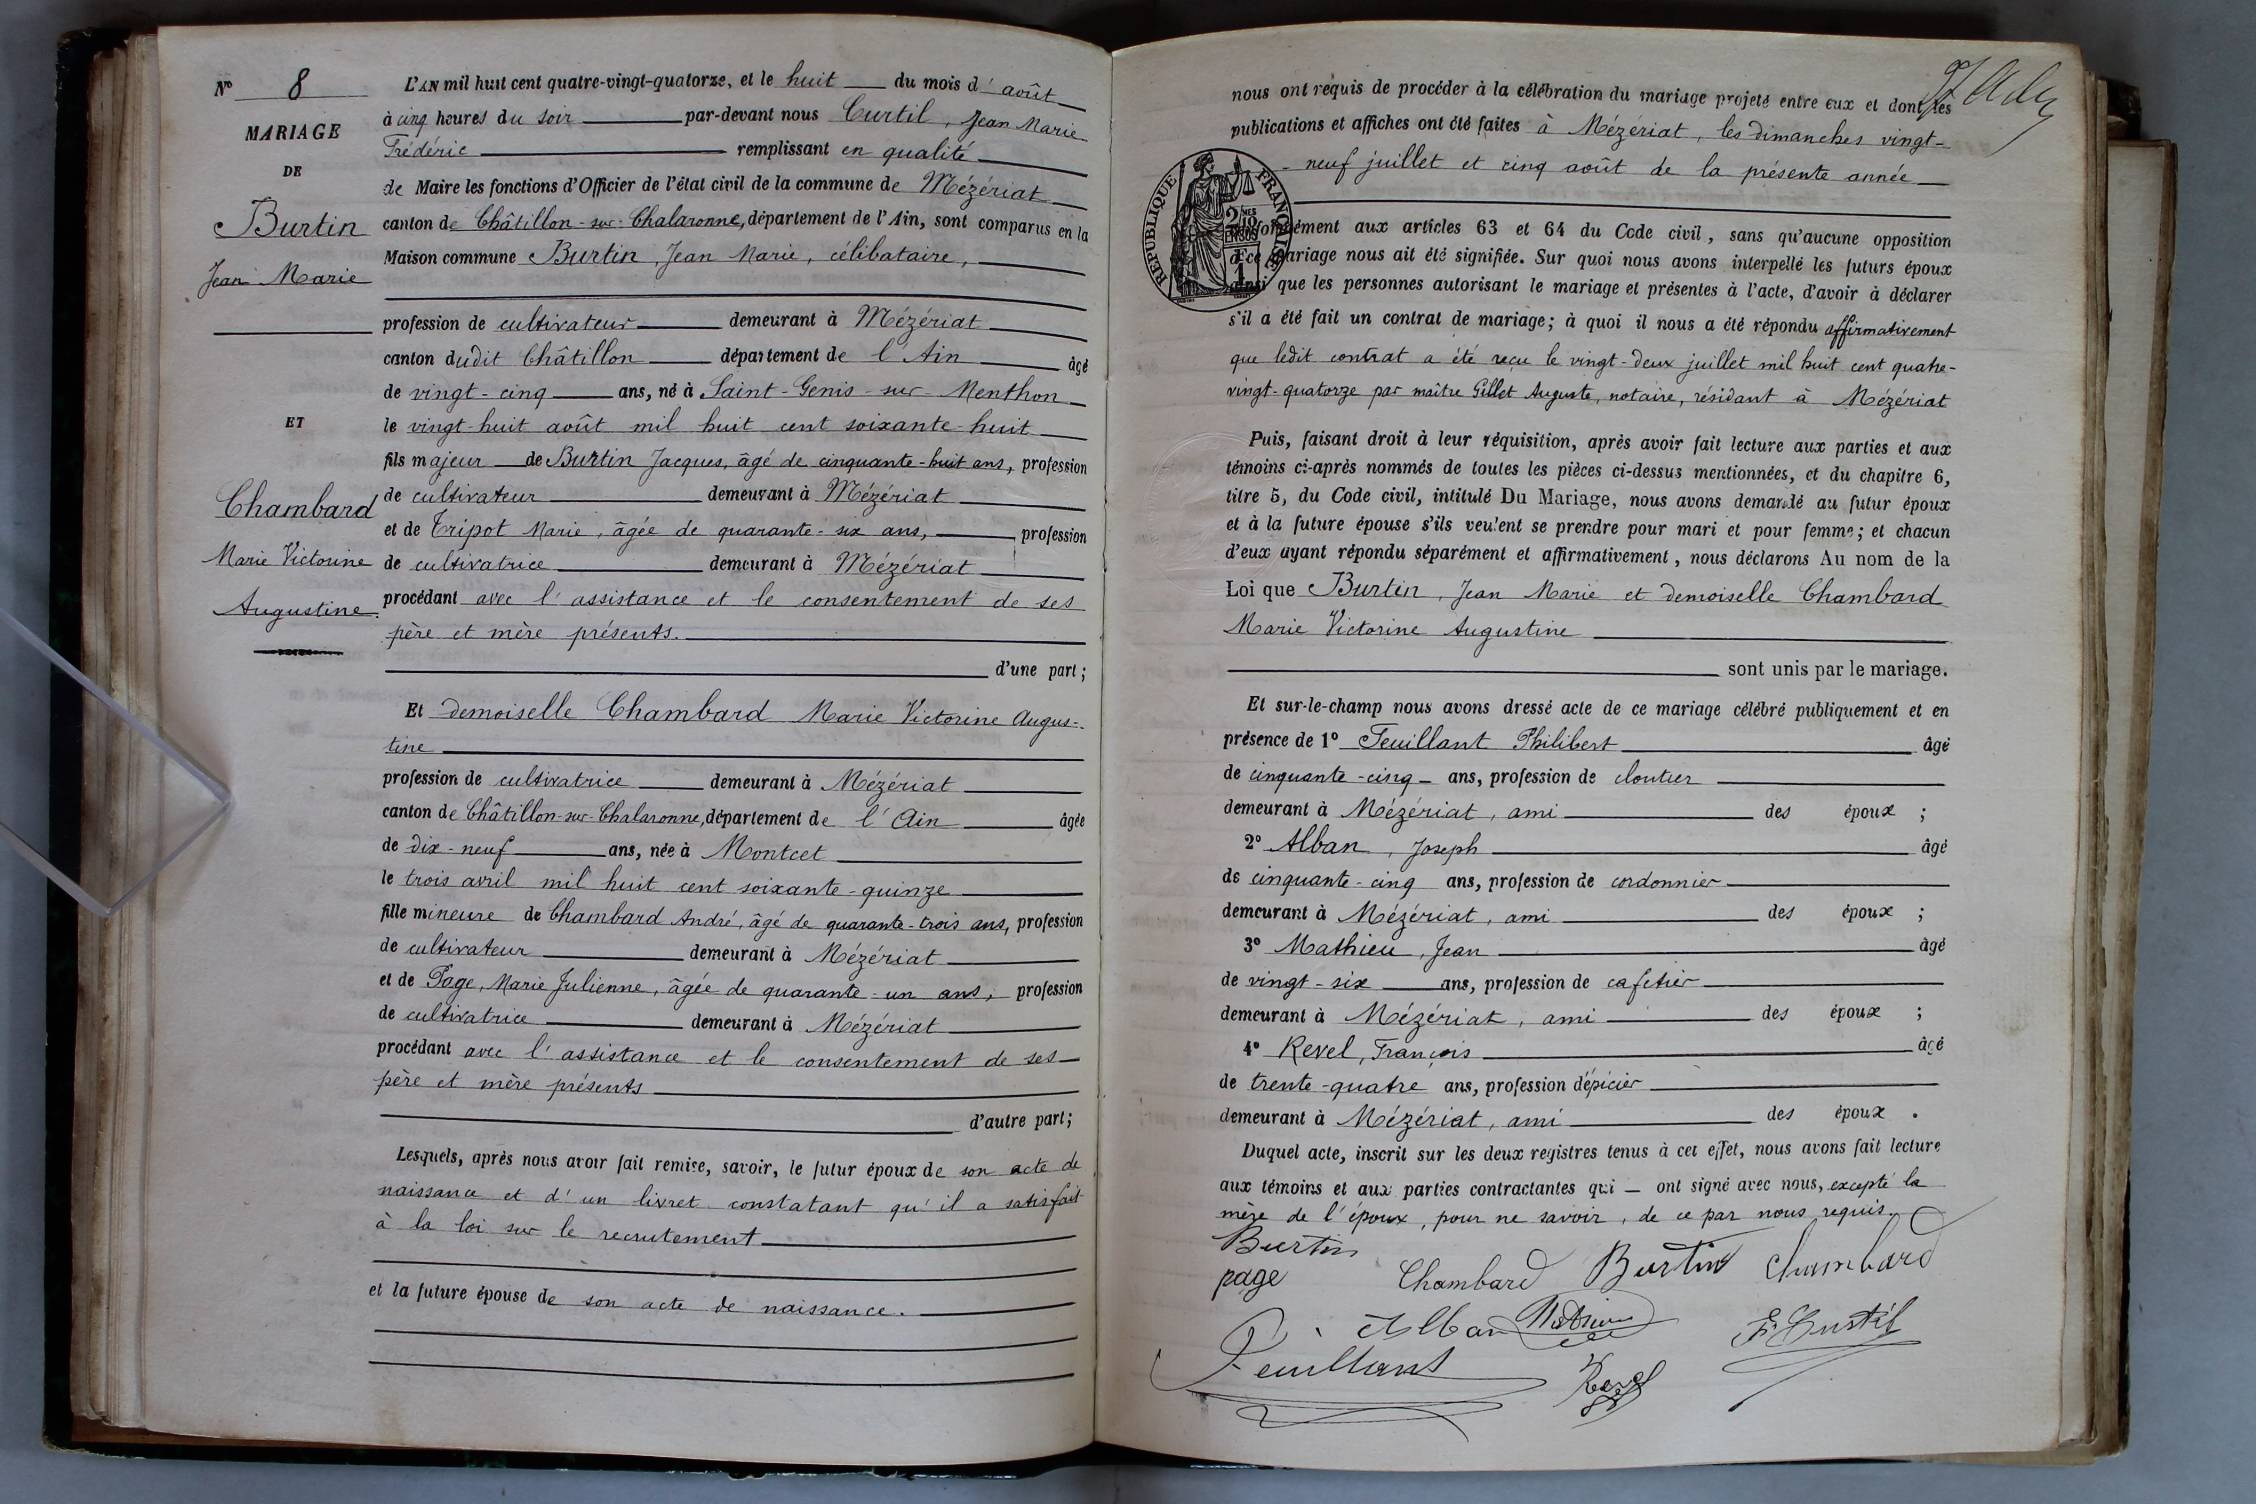 N° 8
MARIAGE
DE
Burtin
Jean Marie
ET
Chambard
Marie Victorine
Augustine.
L'AN mil huit cent quatre-vingt-quatorze, et le huit du mois d'août
à cinq heures du soir par-devant nous Curtil, Jean Marie
Frédéric remplissant en qualité
de Maire les fonctions d'Officier de l'état civil de la commune de Mézériat
canton de Châtillon-sur-Chalaronne, département de l'Ain, sont comparus en la
Maison commune Burtin, Jean Marie, célibataire,
profession de cultivateur demeurant à Mézériat
canton dudit Châtillon département de l'Ain âgé
de vingt-cinq ans, né à Saint-Genis-sur-Menthon
le vingt-huit août mil huit cent soixante-huit
fils majeur de Burtin Jacques, âgé de cinquante-huit ans, profession
de cultivateur demeurant à Mézériat
et de Tripot Marie, âgée de quarante-six ans, profession
de cultivatrice demeurant à Mézériat
procédant avec l'assistance et le consentement de ses
père et mère présents.
d'une part;
Et demoiselle Chambard Marie Victorine Augus-
tine
profession de cultivatrice demeurant à Mézériat
canton de Châtillon-sur-Chalaronne, département de l'Ain âgée
de dix-neuf ans, née à Montcet
le trois avril mil huit cent soixante-quinze
fille mineure de Chambard André, âgé de quarante-trois ans, profession
de cultivateur demeurant à Mézériat
et de Page, Marie Julienne, âgée de quarante-un ans, profession
de cultivatrice demeurant à Mézériat
procédant avec l'assistance et le consentement de ses
père et mère présents
d'autre part;
Lesquels, après nous avoir fait remise, savoir, le futur époux de son acte de
naissance et d'un livret constatant qu'il a satisfait
à la loi sur le recrutement
et la future épouse de son acte de naissance.
nous ont requis de procéder à la célébration du mariage projeté entre eux et dont les
publications et affiches ont été faites à Mézériat, les dimanches vingt-
neuf juillet et cinq août de la présente année
RÉPUBLIQUE FRANÇAISE
2 MES 10
EN SUS
1 F
conformément aux articles 63 et 64 du Code civil, sans qu'aucune opposition
à ce mariage nous ait été signifiée. Sur quoi nous avons interpellé les futurs époux
ainsi que les personnes autorisant le mariage et présentes à l'acte, d'avoir à déclarer
s'il a été fait un contrat de mariage; à quoi il nous a été répondu affirmativement
que ledit contrat a été reçu le vingt-deux juillet mil huit cent quatre-
vingt-quatorze par maître Gillet Auguste, notaire, résidant à Mézériat
Puis, faisant droit à leur réquisition, après avoir fait lecture aux parties et aux
témoins ci-après nommés de toutes les pièces ci-dessus mentionnées, et du chapitre 6,
titre 5, du Code civil, intitulé Du Mariage, nous avons demandé au futur époux
et à la future épouse s'ils veulent se prendre pour mari et pour femme; et chacun
d'eux ayant répondu séparément et affirmativement, nous déclarons Au nom de la
Loi que Burtin, Jean Marie et demoiselle Chambard
Marie Victorine Augustine
sont unis par le mariage.
Et sur-le-champ nous avons dressé acte de ce mariage célébré publiquement et en
présence de 1° Feuillant Philibert âgé
de cinquante-cinq ans, profession de cloutier
demeurant à Mézériat, ami des époux ;
2° Alban, Joseph âgé
de cinquante-cinq ans, profession de cordonnier
demeurant à Mézériat, ami des époux ;
3° Mathieu, Jean âgé
de vingt-six ans, profession de cafetier
demeurant à Mézériat, ami des époux ;
4° Revel, François âgé
de trente-quatre ans, profession d'épicier
demeurant à Mézériat, ami des époux .
Duquel acte, inscrit sur les deux registres tenus à cet effet, nous avons fait lecture
aux témoins et aux parties contractantes qui — ont signé avec nous, excepté la
mère de l'époux, pour ne savoir, de ce par nous requis.
Burtin
page Chambard Burtin Chambard
Alban Mathieu F. Curtil
Feuillant Revel